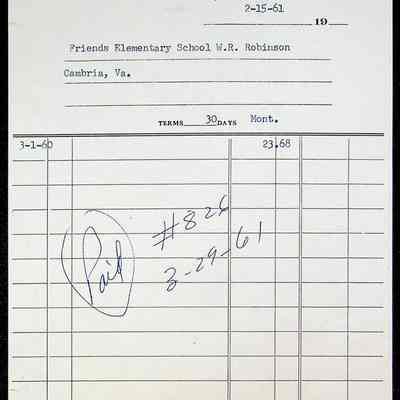 2-15-61
19
Friends Elementary School W.R. Robinson
Cambria, Va.
TERMS 30 DAYS Mont.
3-1-60 23.68
Paid #826
3-29-61